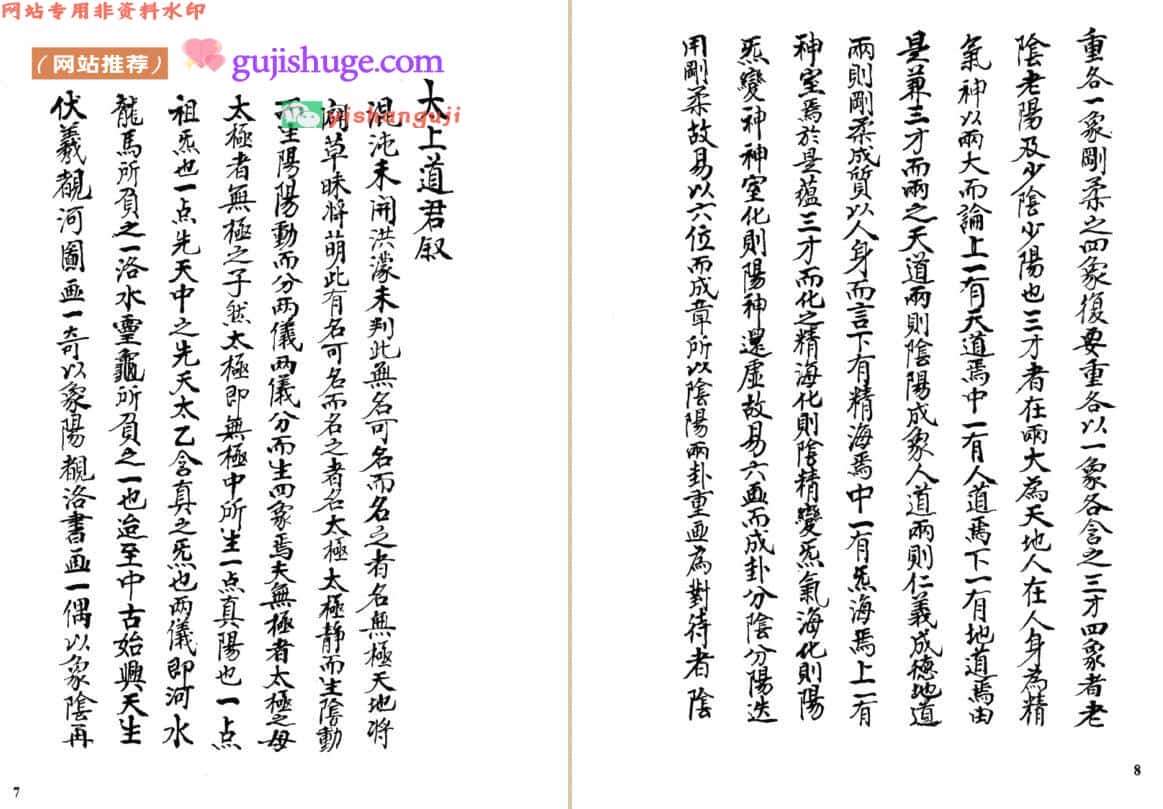 网站专用非资料水印
（网站推荐）
gujishuge.com
yishanguji
太上道君叙
混沌未開洪濛未判此無名可名而名之者名無極天地將
闢草昧將萌此有名可名而名之者名太極太極静而生陰動
而生陽陽動而分两儀两儀分而生四象焉夫無極者太極之母
太極者無極之子然太極即無極中所生一点真陽也一点
祖炁也一点先天中之先天太乙含真之炁也两儀即河水
龍馬所負之一洛水靈龜所負之一也迨至中古始興天生
伏羲觀河圖画一奇以象陽觀洛書画一偶以象陰再
7
重各一象剛柔之四象復要重各以一象各含之三才四象者老
陰老陽及少陰少陽也三才者在兩大為天地人在人身為精
氣神以兩大而論上一有天道焉中一有人道焉下一有地道焉由
是兼三才而兩之天道兩則陰陽成象人道兩則仁義成德地道
兩則剛柔成質以人身而言下有精海焉中一有炁海焉上一有
神室焉於是蘊三才而化之精海化則陰精變炁氣海化則陽
炁變神神室化則陽神還虛故易六画而成卦分陰分陽迭
用剛柔故易以六位而成章所以陰陽兩卦重画為對待者陰
8